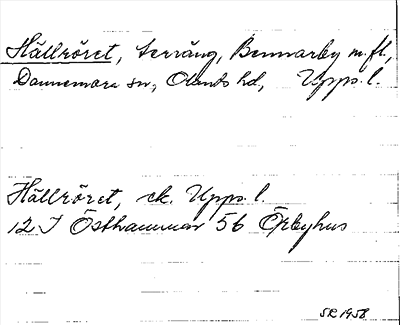 Hällröret, terräng, Bennarby m.fl.,
Dannemora sn, Olands hd, Upps. l.
Hällröret, ek. Upps. l.
12 I Östhammar 5b Örbyhus
SR 1958